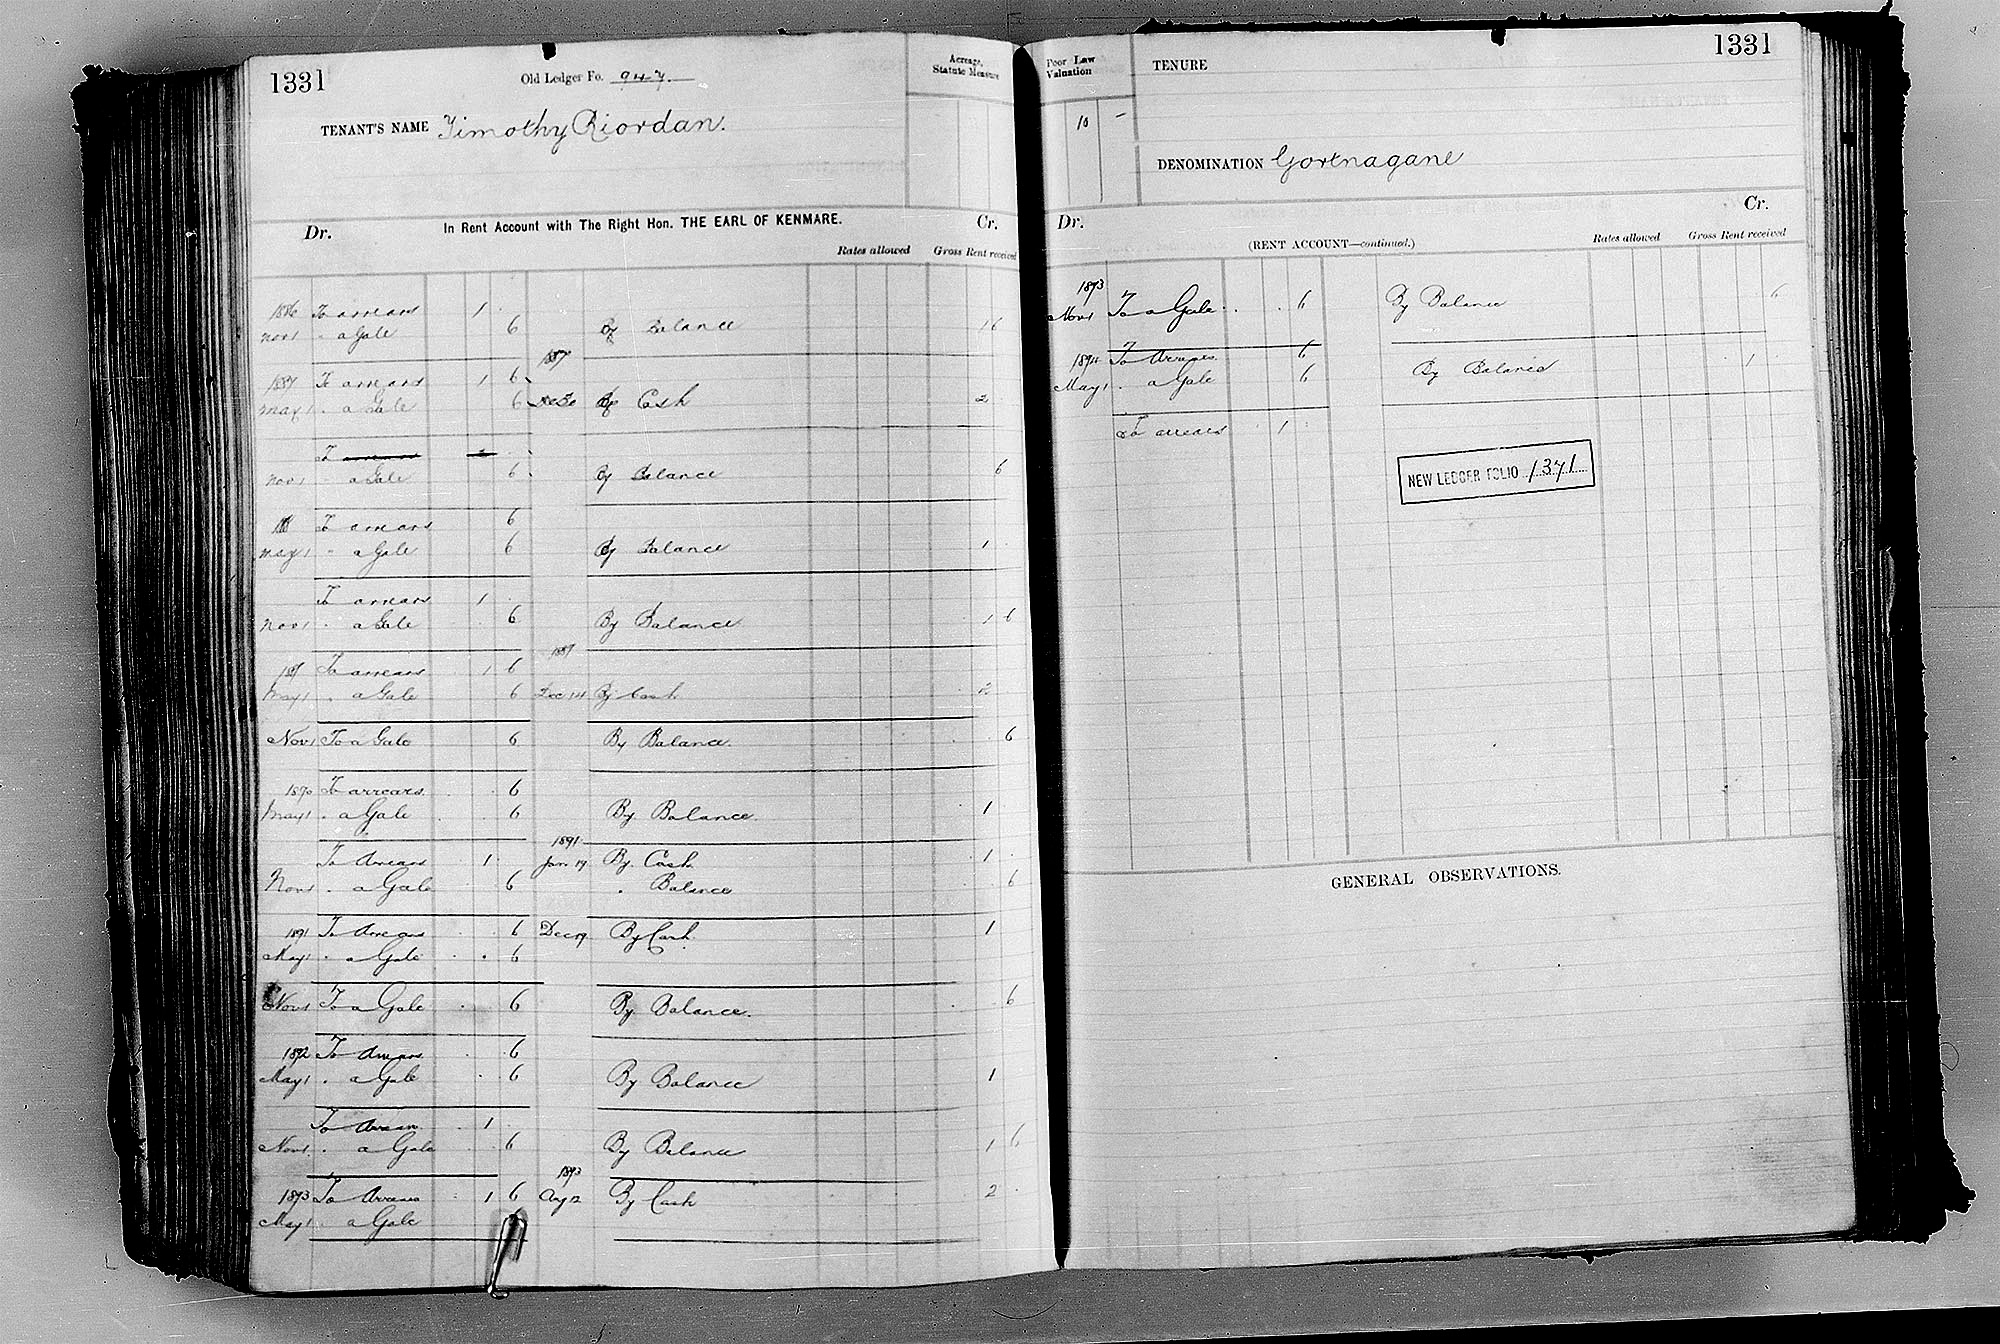 1331 Old Ledger Fo. 947
Acreage, Statute Measure
TENANT'S NAME Timothy Riordan.
In Rent Account with The Right Hon. THE EARL OF KENMARE.
Dr. Cr.
Rates allowed Gross Rent received
1886 To arrears 1 .
Nov 1 " a Gale 6 By Balance 1 6
1887
1887 To arrears 1 6
May 1 . a Gale 6 By Cash 2
To arrears 2
Nov 1 " a Gale 6 By Balance 6
To arrears 6
May 1 " a Gale 6 By Balance 1
To arrears 1 .
Nov 1 . a Gale 6 By Balance 1 6
1889
To arrears 1 6
May 1 . a Gale 6 Dec 14 By Cash 2
Nov 1 To a Gale 6 By Balance. 6
1890 To arrears. 6
May 1 . a Gale 6 By Balance. 1
1891
To Arrears 1 Jan 17 By Cash 1
Nov 1 . a Gale 6 . Balance 6
1891 To Arrears 6 Dec 19 By Cash. 1
May 1 . a Gale 6
Nov 1 To a Gale 6 By Balance. 6
1892 To Arrears 6
May 1 . a Gale 6 By Balance 1
To Arrears 1
Nov 1 . a Gale 6 By Balance 1 6
1893
1893 To Arrears 1 6 Aug 12 By Cash 2
May 1 . a Gale
1331
Poor Law Valuation
TENURE
10 -
DENOMINATION Gortnagane
Dr. Cr.
(RENT ACCOUNT—continued.)
Rates allowed Gross Rent received
1893
Nov 1 To a Gale . 6 By Balance 6
1894 To Arrears 6
May 1 . a Gale 6 By Balance 1
To arrears 1
NEW LEDGER FOLIO 1371
GENERAL OBSERVATIONS.